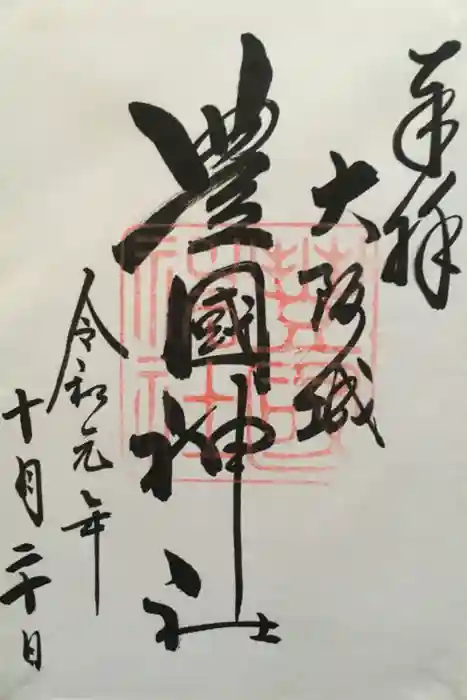 奉拝
大阪城
豊國神社
令和元年
十月二十日